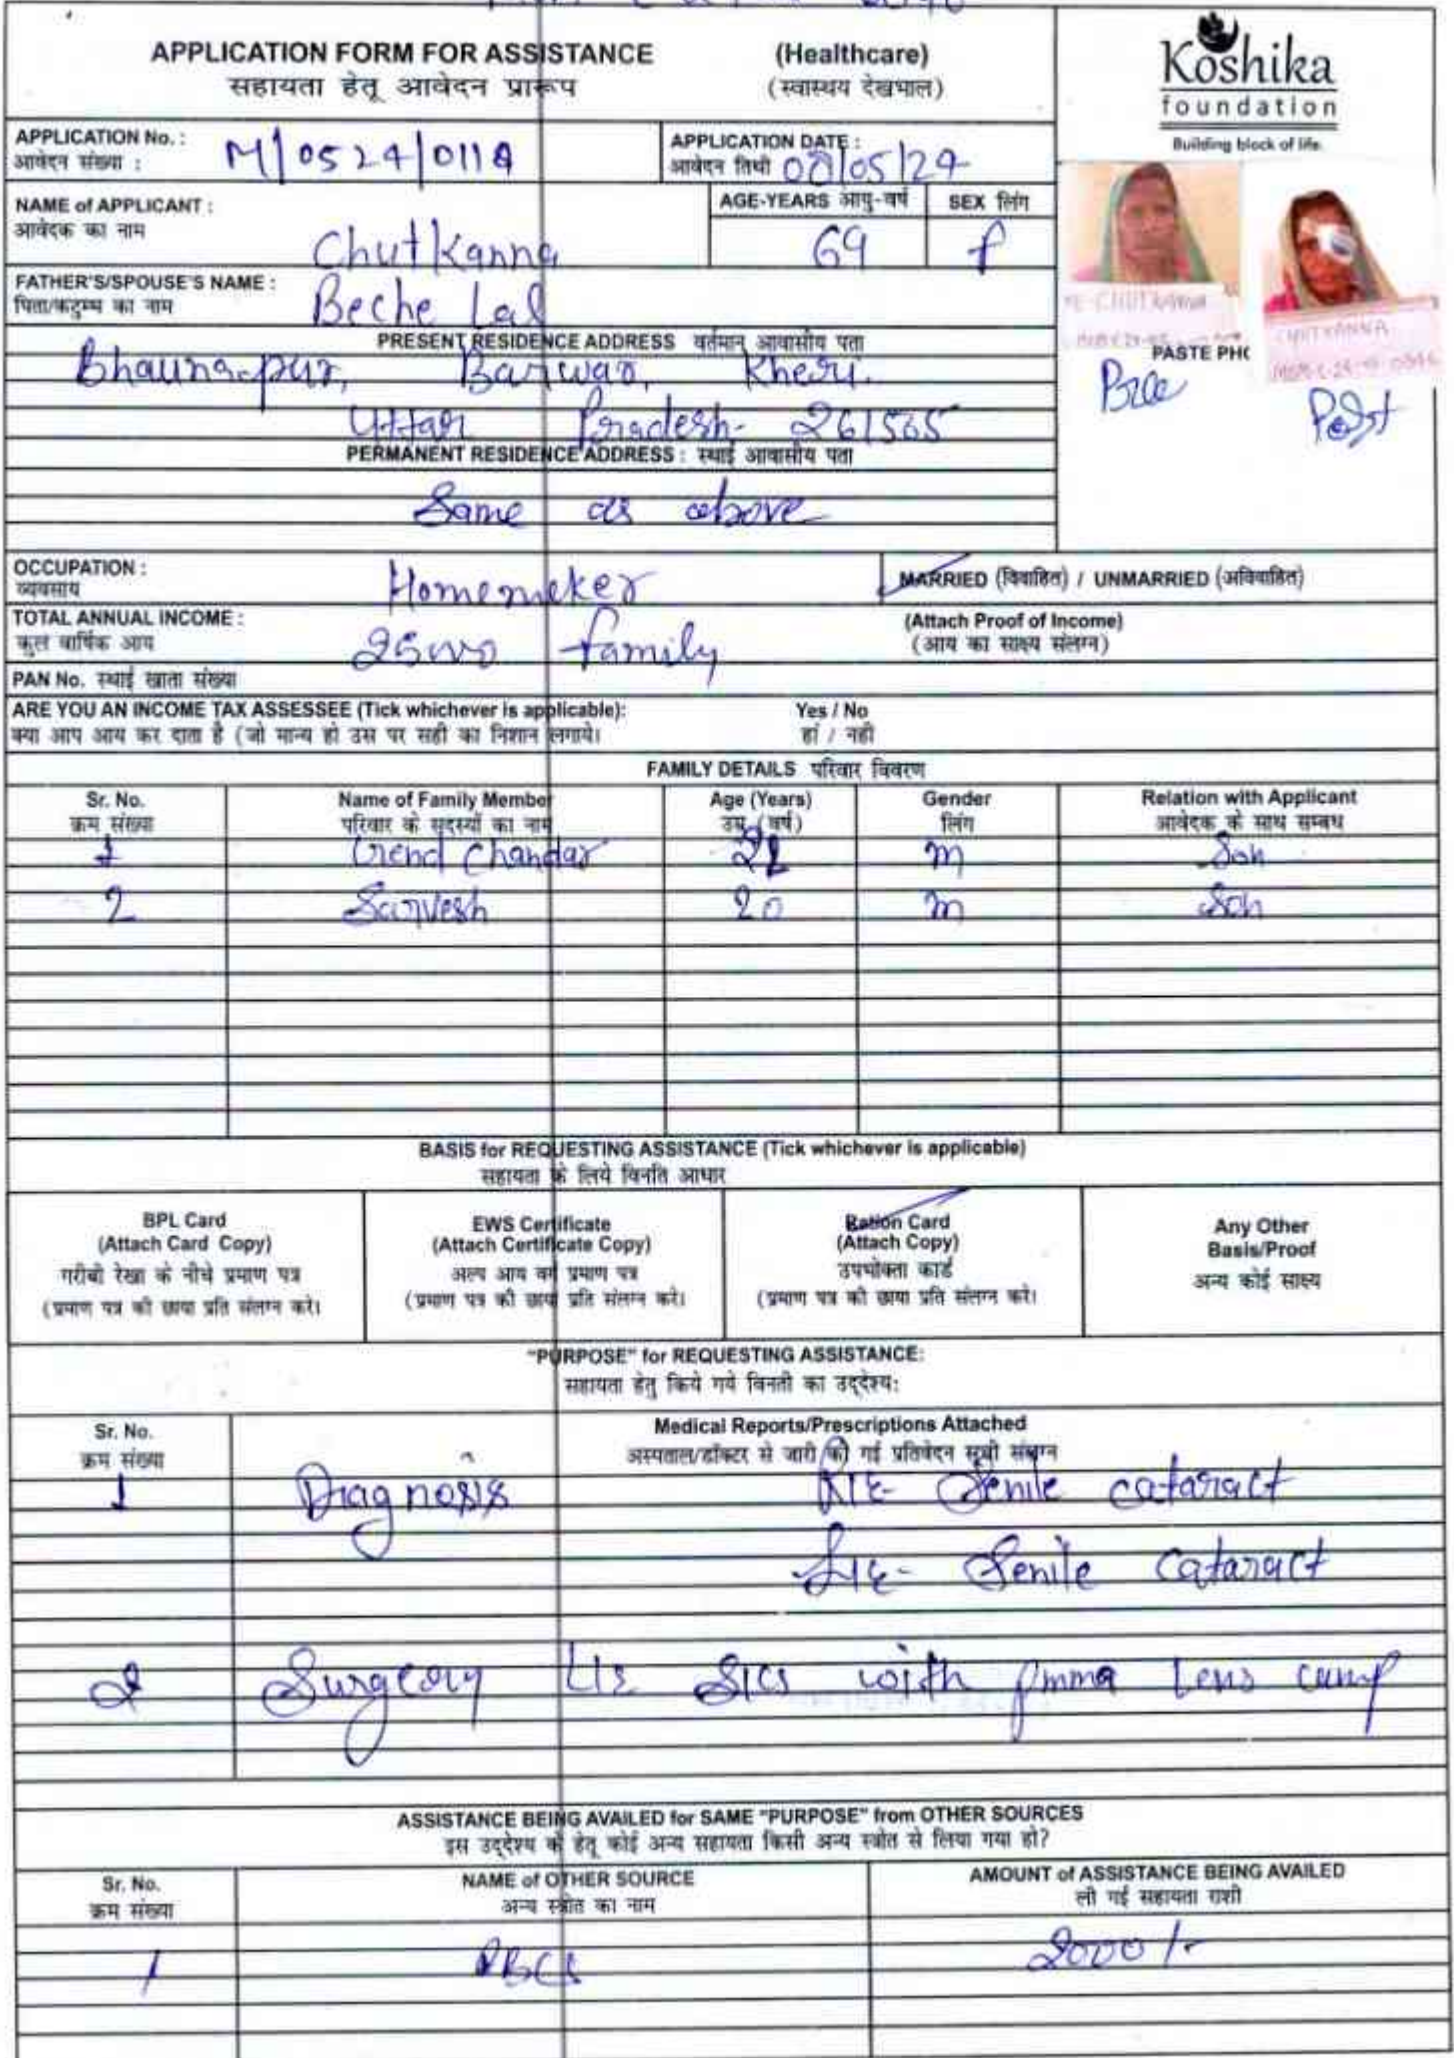 APPLICATION FORM FOR ASSISTANCE (Healthcare)
सहायता हेतू आवेदन प्रारूप (स्वास्थय देखभाल)
Koshika
foundation
Building block of life.
APPLICATION No. :
आवेदन संख्या :
M/0524/0119
APPLICATION DATE :
आवेदन तिथी 08/05/24
NAME of APPLICANT :
आवेदक का नाम
Chutkanna
AGE-YEARS आयु-वर्ष
69
SEX लिंग
f
FATHER'S/SPOUSE'S NAME :
पिता/कटुम्ब का नाम
Beche Lal
PRESENT RESIDENCE ADDRESS वर्तमान आवासीय पता
Bhaunapur, Barwar, Kheri.
Uttar Pradesh- 261505
PERMANENT RESIDENCE ADDRESS : स्थाई आवासीय पता
Same as above
CHUTKANNA
CHUTKANNA
PASTE PHO
Pre
Post
OCCUPATION :
व्यवसाय
Homemaker
MARRIED (विवाहित) / UNMARRIED (अविवाहित)
TOTAL ANNUAL INCOME :
कुल वार्षिक आय
family
(Attach Proof of Income)
(आय का साक्ष्य संलग्न)
PAN No. स्थाई खाता संख्या
ARE YOU AN INCOME TAX ASSESSEE (Tick whichever is applicable): Yes / No
क्या आप आय कर दाता है (जो मान्य हो उस पर सही का निशान लगाये। हां / नही
FAMILY DETAILS परिवार विवरण
Sr. No. Name of Family Member Age (Years) Gender Relation with Applicant
क्रम संख्या परिवार के सदस्यों का नाम उम्र (वर्ष) लिंग आवेदक के साथ सम्बध
1 Chandar m Son
2 Sarvesh 20 m Son
BASIS for REQUESTING ASSISTANCE (Tick whichever is applicable)
सहायता के लिये विनति आधार
BPL Card
(Attach Card Copy)
गरीबी रेखा के नीचे प्रमाण पत्र
(प्रमाण पत्र की छाया प्रति संलग्न करे।
EWS Certificate
(Attach Certificate Copy)
अल्प आय वर्ग प्रमाण पत्र
(प्रमाण पत्र की छाया प्रति संलग्न करे।
Ration Card
(Attach Copy)
उपभोक्ता कार्ड
(प्रमाण पत्र की छाया प्रति संलग्न करे।
Any Other
Basis/Proof
अन्य कोई साक्ष्य
"PURPOSE" for REQUESTING ASSISTANCE:
सहायता हेतु किये गये विनती का उद्देश्य:
Sr. No. Medical Reports/Prescriptions Attached
क्रम संख्या अस्पताल/डॉक्टर से जारी की गई प्रतिवेदन सूची संलग्न
1 Diagnosis R/E- Senile cataract
L/E- Senile Cataract
2 Surgery L/E SICS with pmma Lens camp
ASSISTANCE BEING AVAILED for SAME "PURPOSE" from OTHER SOURCES
इस उद्देश्य के हेतू कोई अन्य सहायता किसी अन्य स्त्रोत से लिया गया हो?
Sr. No. NAME of OTHER SOURCE AMOUNT of ASSISTANCE BEING AVAILED
क्रम संख्या अन्य स्त्रोत का नाम ली गई सहायता राशी
1 2000/-